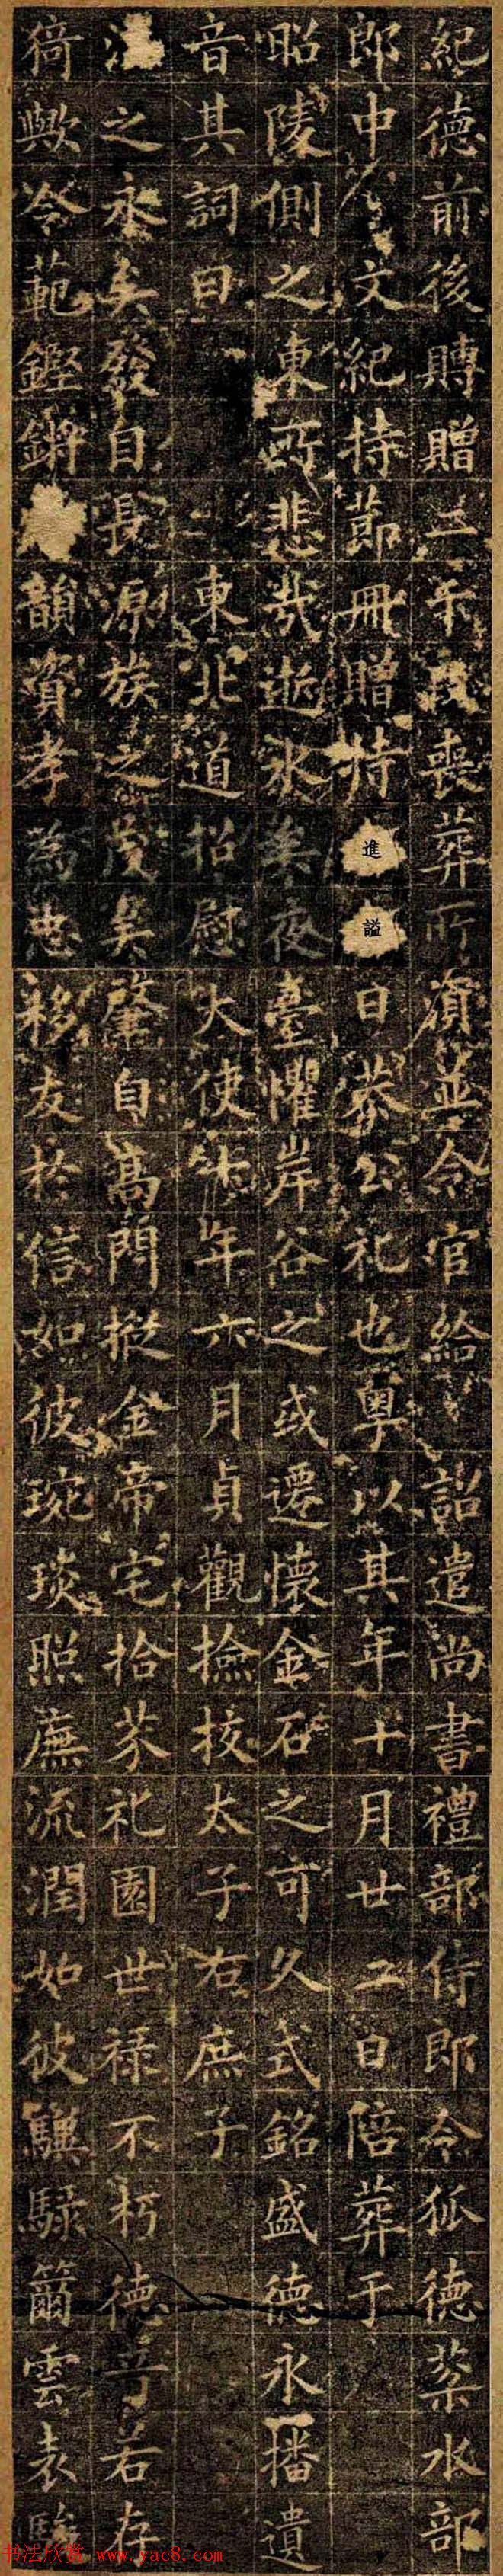 紀德前後賻贈二千段喪葬所須並令官給詔遣尚書禮部侍郎令狐德棻水部
郎中文紀持節冊贈特進謚曰恭公礼也粵以其年十月廿二日陪葬于
昭陵側之東所悲哉逝水矣夜臺懼岸谷之或遷懷金石之可久式銘盛德永播遺
音其詞曰東北道招慰大使十年六月貞觀撿挍太子右庶子
之永矣發自長源族之茂矣肇自高門摐金帝宅拾芥礼園世祿不朽德音若存
猗歟冷範鏗鏘韻資孝為忠移友於信如彼琬琰照廡流潤如彼驥騄籋雲表駿
书法欣赏 www.yac8.com